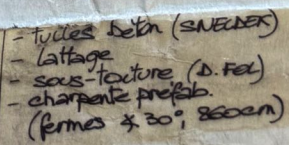 - tuiles béton (SNELDEK)
- lattage
- sous-toiture (D. Fel)
- charpente préfab.
(fermes ∡ 30°, 860cm)